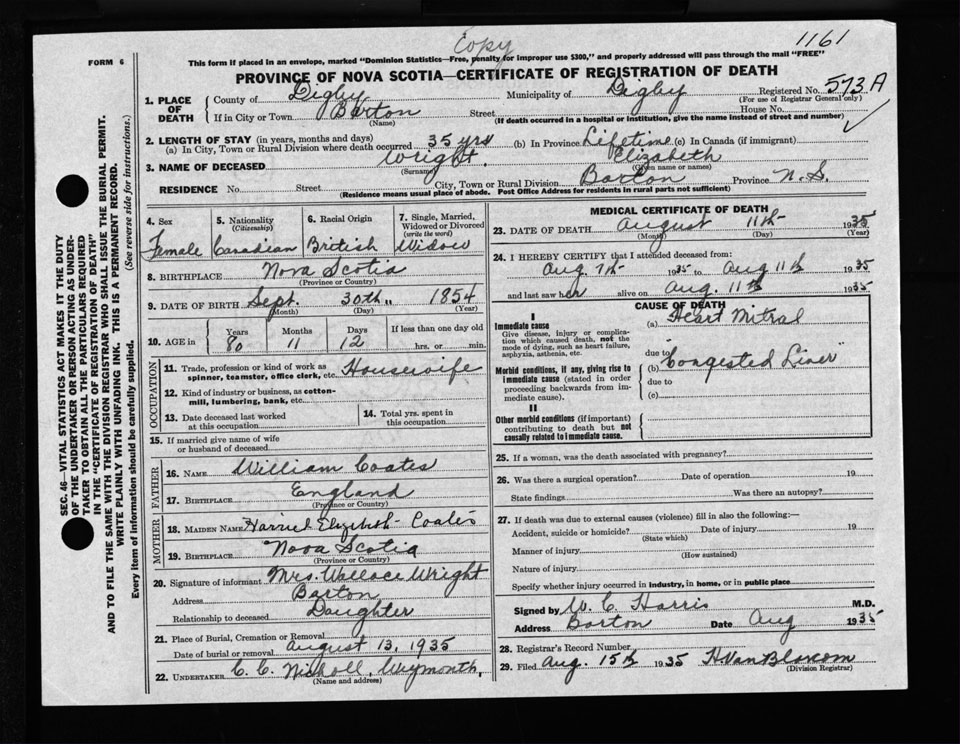 Copy
1161
FORM 6
This form if placed in an envelope, marked "Dominion Statistics—Free, penalty for improper use $300," and properly addressed will pass through the mail "FREE"
PROVINCE OF NOVA SCOTIA—CERTIFICATE OF REGISTRATION OF DEATH
1. PLACE OF DEATH
County of Digby Municipality of Digby Registered No. 573 A
(For use of Registrar General only)
If in City or Town Barton Street House No.
(Name) (If death occurred in a hospital or institution, give the name instead of street and number)
2. LENGTH OF STAY (in years, months and days)
(a) In City, Town or Rural Division where death occurred 35 yrs (b) In Province Lifetime (c) In Canada (if immigrant)
3. NAME OF DECEASED Wright Elizabeth
(Surname) (Given name or names)
RESIDENCE No. Street City, Town or Rural Division Barton Province N.S.
(Residence means usual place of abode. Post Office Address for residents in rural parts not sufficient)
4. Sex Female
5. Nationality (Citizenship) Canadian
6. Racial Origin British
7. Single, Married, Widowed or Divorced (write the word) Widow
8. BIRTHPLACE Nova Scotia
(Province or Country)
9. DATE OF BIRTH Sept. 30th 1854
(Month) (Day) (Year)
10. AGE in Years 80 Months 11 Days 12 If less than one day old hrs. or min.
OCCUPATION
11. Trade, profession or kind of work as spinner, teamster, office clerk, etc. Housewife
12. Kind of industry or business, as cotton-mill, lumbering, bank, etc.
13. Date deceased last worked at this occupation
14. Total yrs. spent in this occupation
15. If married give name of wife or husband of deceased
FATHER
16. NAME William Coates
17. BIRTHPLACE England
(Province or Country)
MOTHER
18. MAIDEN NAME Elizabeth Coates
19. BIRTHPLACE Nova Scotia
(Province or Country)
20. Signature of informant Mrs. Wallace Wright
Address Barton
Relationship to deceased Daughter
21. Place of Burial, Cremation or Removal
Date of burial or removal August 13, 1935
22. UNDERTAKER C. C. Nicholl, Weymouth,
(Name and address)
MEDICAL CERTIFICATE OF DEATH
23. DATE OF DEATH August 11th 1935
(Month) (Day) (Year)
24. I HEREBY CERTIFY that I attended deceased from:
Aug 7th 1935 to Aug 11th 1935
and last saw her alive on Aug. 11th 1935
CAUSE OF DEATH
I
Immediate cause (a) Heart Mitral
Give disease, injury or complication which caused death, not the mode of dying, such as heart failure, asphyxia, asthenia, etc.
due to
(b) "Congested Liver"
Morbid conditions, if any, giving rise to immediate cause (stated in order proceeding backwards from immediate cause).
due to
(c)
II
Other morbid conditions (if important) contributing to death but not causally related to immediate cause.
25. If a woman, was the death associated with pregnancy?
26. Was there a surgical operation? Date of operation 19
State findings Was there an autopsy?
27. If death was due to external causes (violence) fill in also the following:—
Accident, suicide or homicide? Date of injury 19
(State which)
Manner of injury
(How sustained)
Nature of injury
Specify whether injury occurred in industry, in home, or in public place
Signed by W. C. Harris M.D.
Address Barton Date Aug 1935
28. Registrar's Record Number
29. Filed Aug. 15th 1935 H Van Blarcom
(Division Registrar)
SEC. 46—VITAL STATISTICS ACT MAKES IT THE DUTY
OF THE UNDERTAKER OR PERSON ACTING AS UNDER-
TAKER TO OBTAIN ALL THE PARTICULARS REQUIRED
IN THE "CERTIFICATE OF REGISTRATION OF DEATH"
AND TO FILE THE SAME WITH THE DIVISION REGISTRAR WHO SHALL ISSUE THE BURIAL PERMIT.
WRITE PLAINLY WITH UNFADING INK. THIS IS A PERMANENT RECORD.
Every item of information should be carefully supplied. (See reverse side for instructions.)